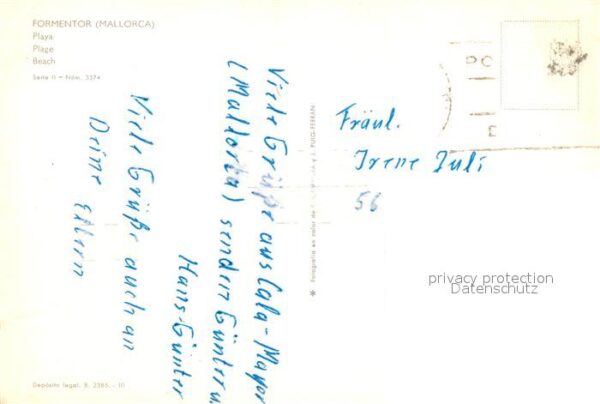 FORMENTOR (MALLORCA)
Playa
Plage
Beach
Serie II - Núm. 3374
Viele Grüße aus Cala-Mayor
(Mallorca) senden Günter u.
Hans-Günter
Viele Grüße auch an
Deine Eltern
Fotografía en color de Y. PUIG-FERRAN
Fräul.
Irene Juli
56
privacy protection
Datenschutz
Depósito legal. B. 2385. - III